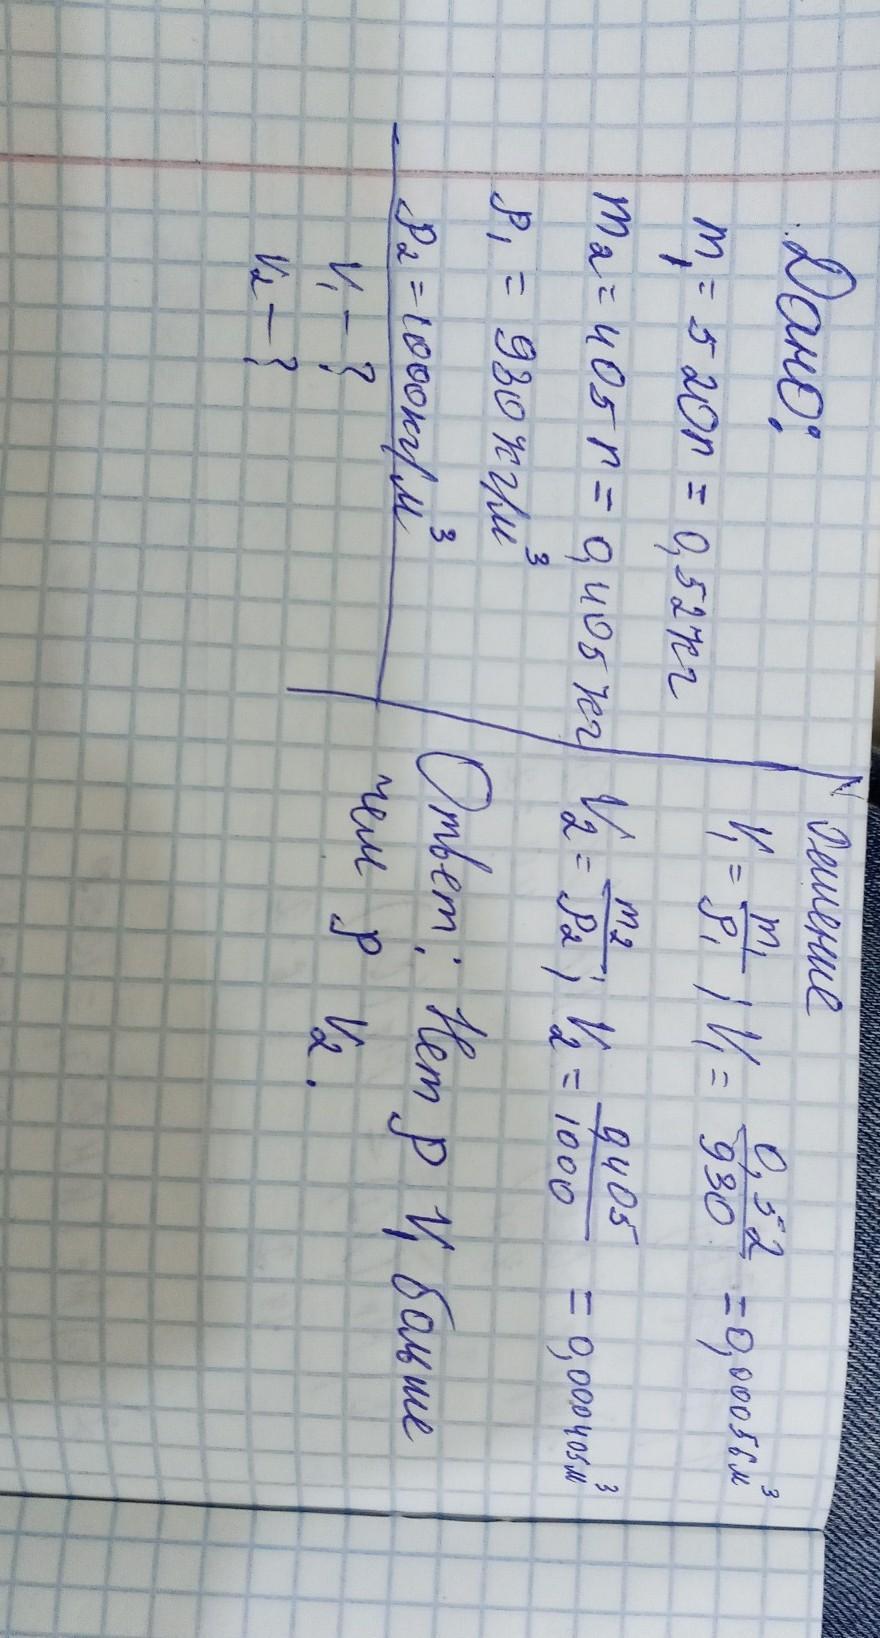 Дано:
m₁ = 520г = 0,52кг
m₂ = 405г = 0,405кг
ρ₁ = 930кг/м³
ρ₂ = 1000кг/м³
V₁ – ?
V₂ – ?
Решение
V₁ = m₁/ρ₁; V₁ = 0,52/930 = 0,00056м³
V₂ = m₂/ρ₂; V₂ = 0,405/1000 = 0,000405м³
Ответ: Нет ρ V₁ больше
чем ρ V₂.